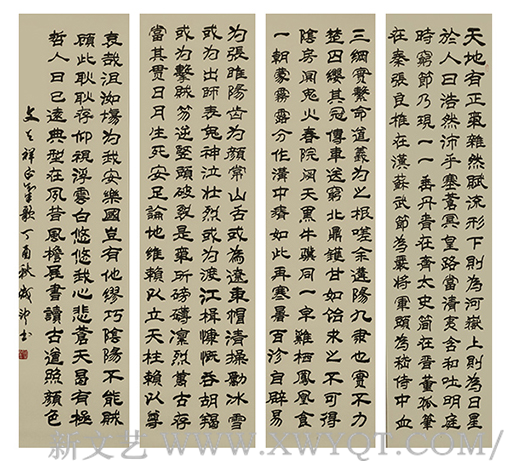 天地有正氣雜然賦流形下則為河嶽上則為日星
於人曰浩然沛乎塞蒼冥皇路當清夷含和吐明庭
時窮節乃現一一垂丹青在齊太史簡在晉董狐筆
在秦張良椎在漢蘇武節為嚴將軍頭為嵇侍中血
三綱實繫命道義為之根嗟余遘陽九隸也實不力
楚囚纓其冠傳車送窮北鼎鑊甘如飴求之不可得
陰房闃鬼火春院閟天黑牛驥同一皁雞棲鳳凰食
一朝蒙霧露分作溝中瘠如此再寒暑百沴自辟易
為張睢陽齒為顏常山舌或為遼東帽清操勵冰雪
或為出師表鬼神泣壯烈或為渡江楫慷慨吞胡羯
或為擊賊笏逆豎頭破裂是氣所磅礴凜烈萬古存
當其貫日月生死安足論地維賴以立天柱賴以尊
哀哉沮洳場為我安樂國豈有他繆巧陰陽不能賊
顧此耿耿存仰視浮雲白悠悠我心悲蒼天曷有極
哲人日已遠典型在夙昔風檐展書讀古道照顏色
文天祥正氣歌丁酉秋書
新文艺 www.XWYQT.COM/